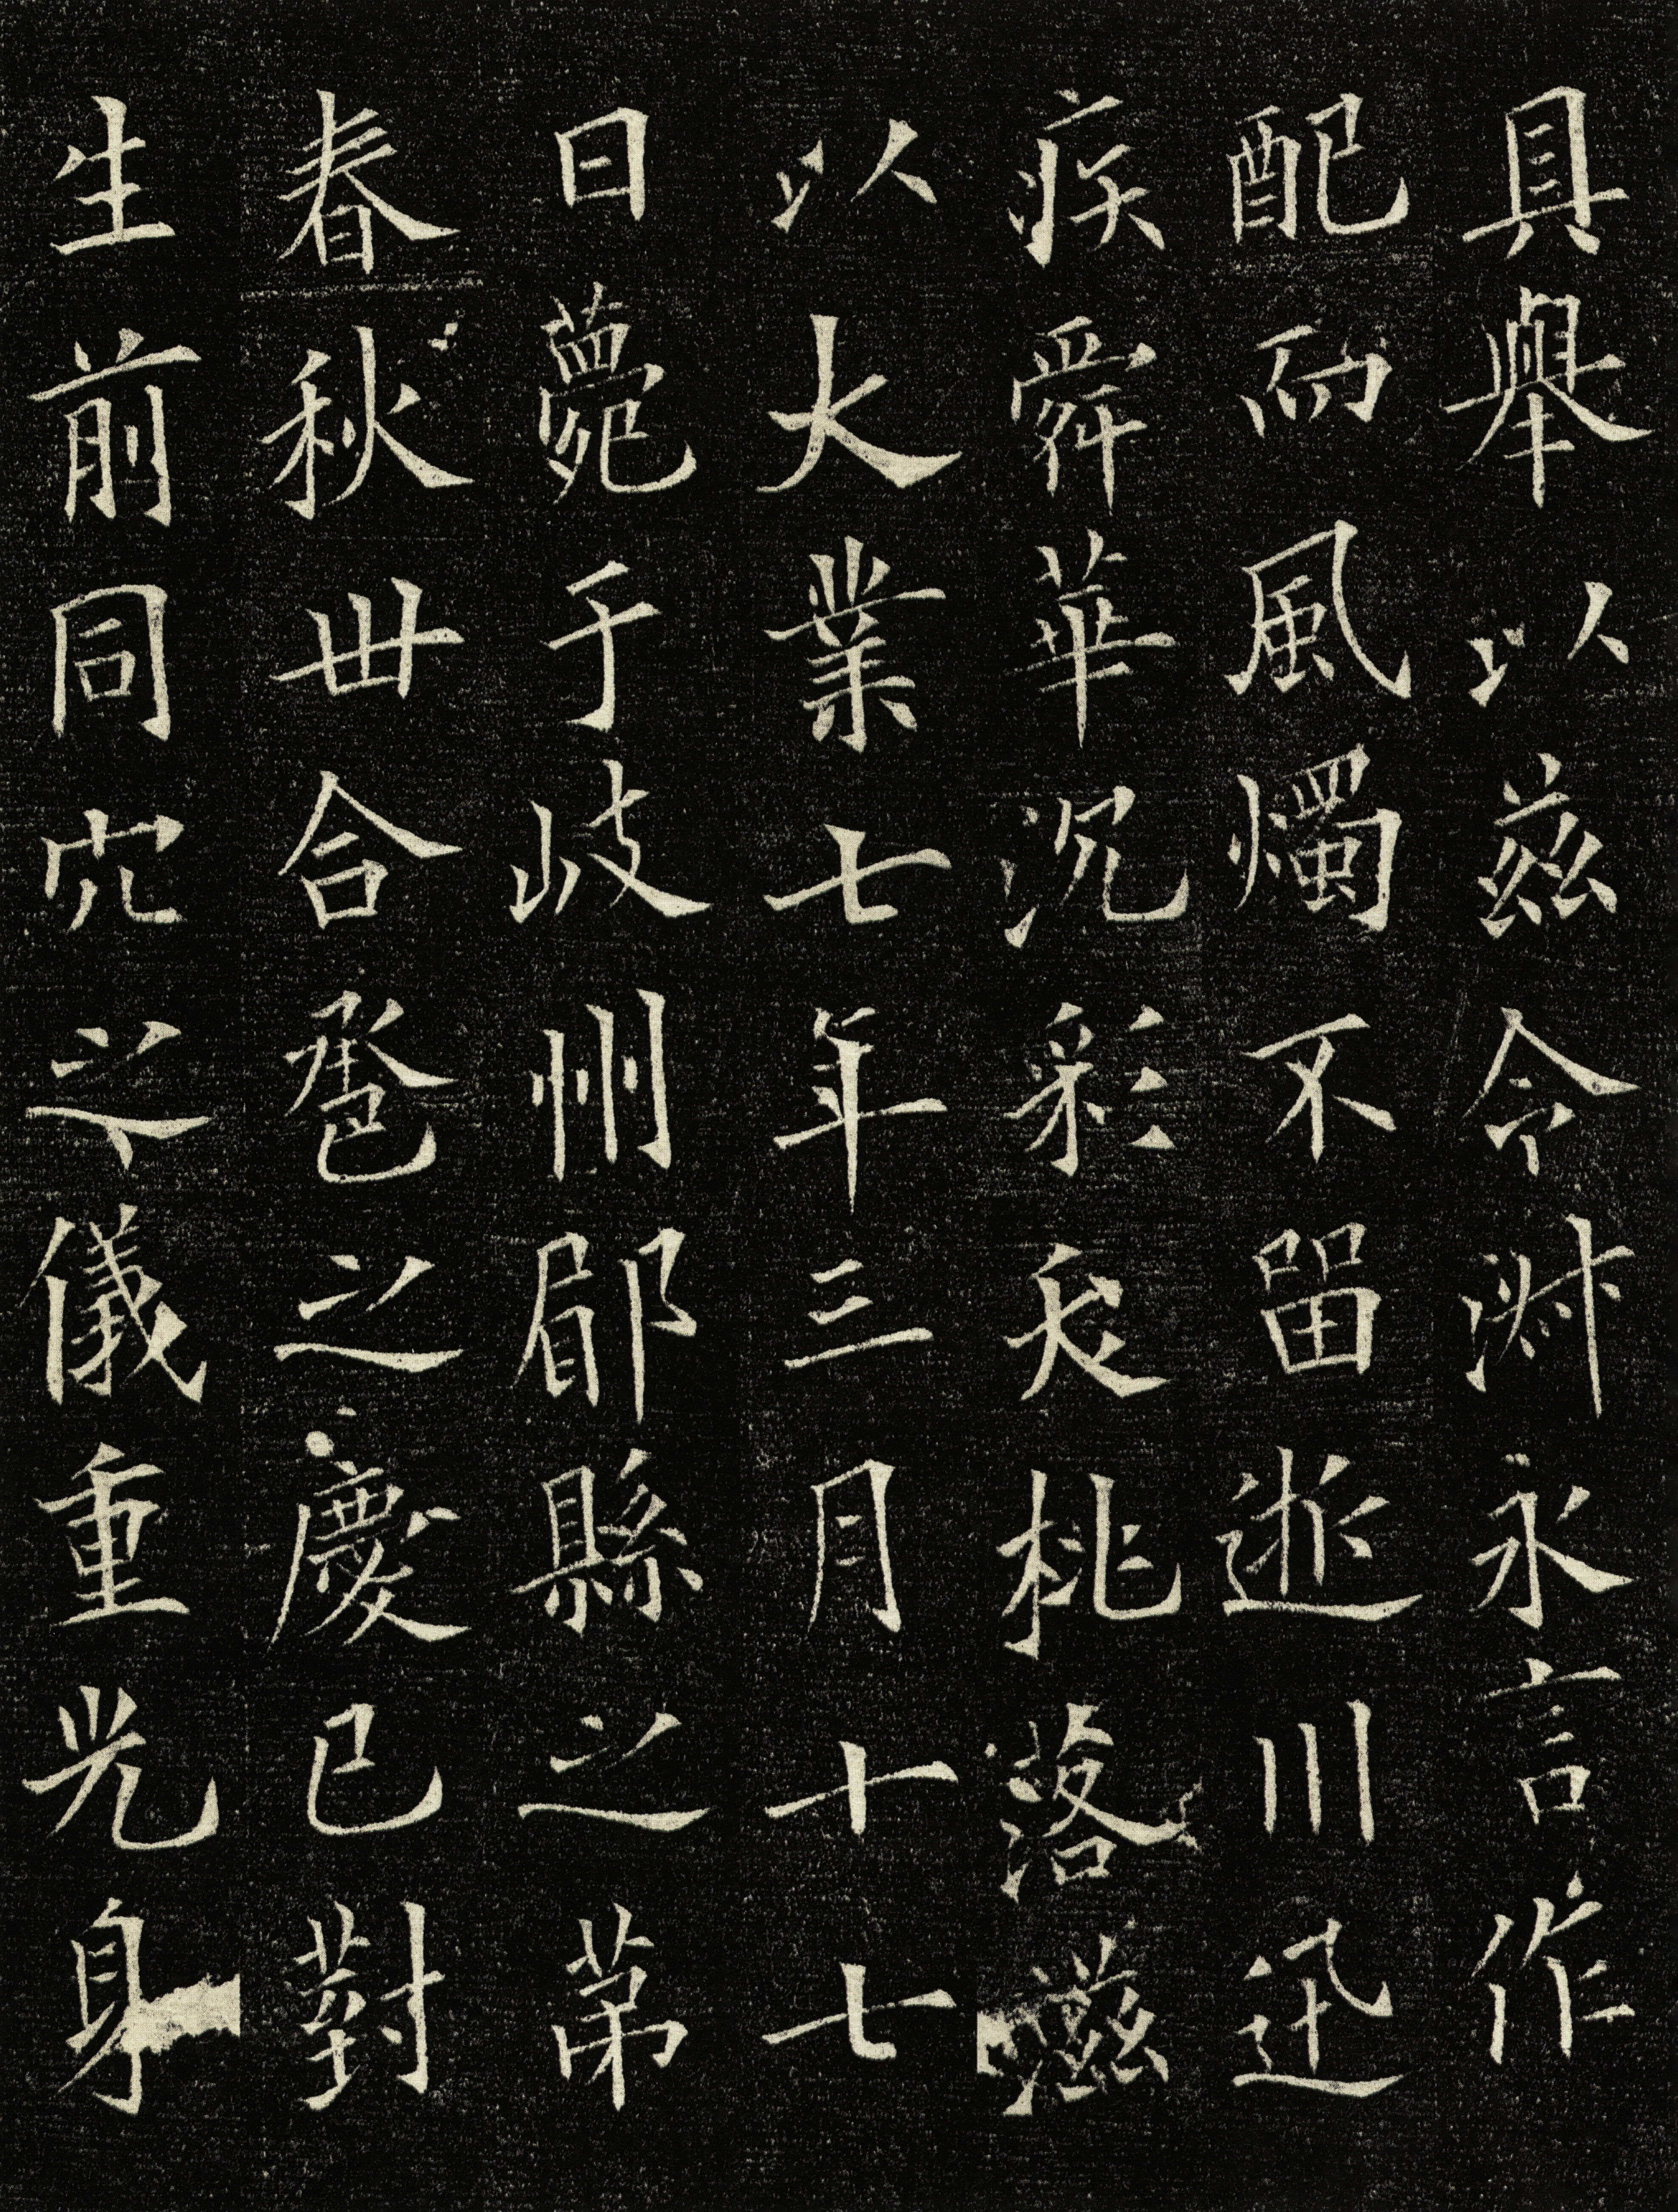 具舉以茲令淑永言作
配而風燭不留逝川迅
疾舜華沉彩夭桃落滋
以大業七年三月十七
日薨于岐州郿縣之苐
春秋卌合巹之慶已對
生前同穴之儀重光身